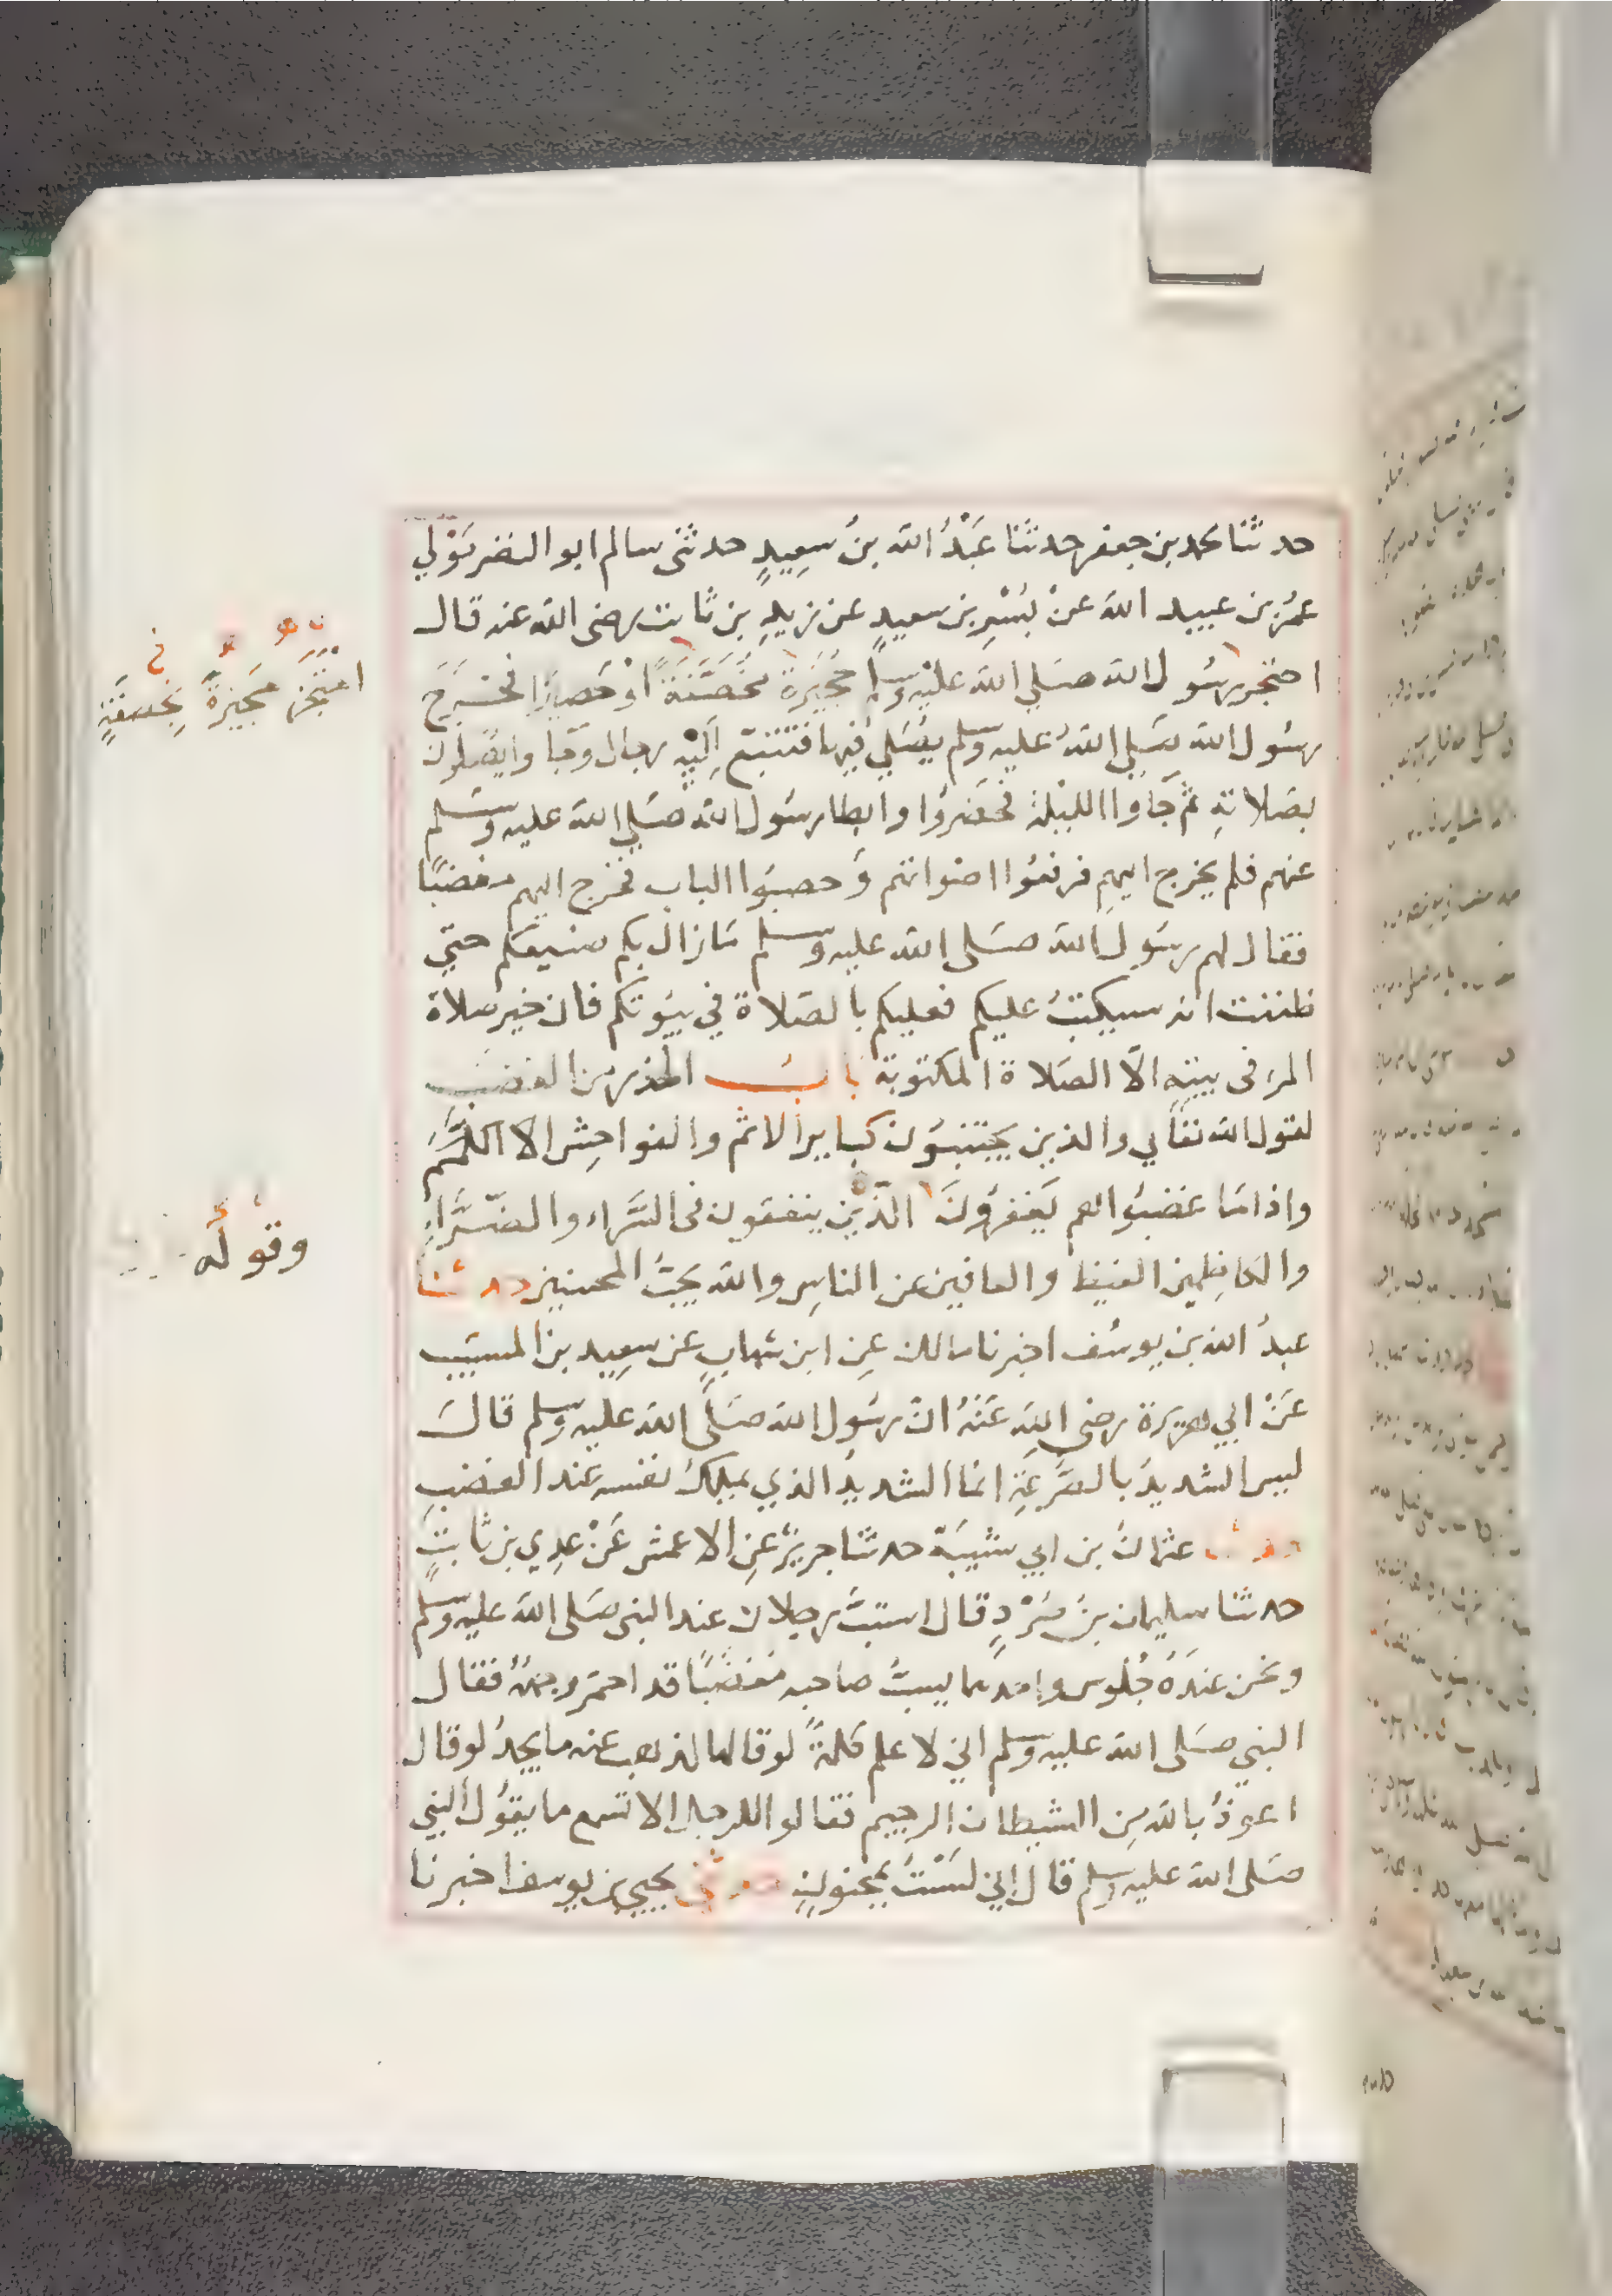 حدثنا محمد بن جعفر حدثنا عَبْدُ الله بنُ سَعِيدٍ حدثنى سالم ابو النضر مَوْلي
عمُر بن عبيد الله عنْ بُسْرِ بن سعيدٍ عن زيدِ بن ثابت رضى الله عنه قال
احتجر رسُول الله صَلي الله عليْه وسلم حُجَيْرَةً مُخَصَّفَةً اوْ حَصيرًا فخرَجَ
رسُول الله صَلي اللهُ عليه وسلم يصَلي فيها فتتبع اِلَيْه رجال وجَاوا يصَلون
بصَلاتهِ ثم جَاوا الليْلة فحضَروُا وابطا رسُول الله صَلي الله عليه وسَلم
عنهم فلم يخرج اليهم فرفعُوا اصْواتهم وَحصبوُا الباب فخرج اليهم مغضبًا
فقال لهم رسَول الله صَلى الله عليه وسلم مَا زال بكم صنيعكم حتي
ظننت انه سيكتبُ عليكم فعليكم بالصَلاة في بيُوتكم فان خير صَلاة
المرء فى بيتهِ الّا الصَلاة المكتوبة بابُ الحذر من الغضب
لقول الله تعَالي والذين يجتنبوُن كباير الاثم والفواحِش الا اللمَّمَ
واذا مَا غضبُوا هم يَغفروُنَ الّذيْن ينفقون فى السَّراء والضّرَّاءِ
والكاظِمين الغيظ والعافين عن الناسِ والله يحبُّ المحسنين حدثنا
عبدُ الله بن يوسُف اخبرنا مالك عِن ابن شهابٍ عن سعِيد بن المسَيّب
عَنْ ابي هرَيرَة رضى الله عَنْهُ انّ رسُول الله صَلى الله عليه وسلم قالَ
ليس الشديدُ بالصَّرعَةِ انما الشديدُ الذي يملكُ نفسه عند الغضبِ
حدثنا عثمانُ بن ابي شيبَة حدثنا جريرٌ عنِ الاعمش عَنْ عدِي بن ثابتٍ
حدثنا سليمان بنُ صُرَدٍ قال استبَّ رجلان عند النبى صَلى الله عليه وسلم
ونحن عندَهُ جُلوس واحدهما يسبُّ صاحبه مُغضبًا قد احمَر وجههُ فقال
النبي صَلى الله عليه وسلم اني لاعلم كلمةً لو قالها لذهب عنه ما يجدُ لو قال
اعوذُ بالله مِن الشيطان الرجيم فقالوا للرجل الا تسمع ما يقوُل النبي
صَلى الله عليه وسلم قال إني لسْتُ بمجنونٍ حدثني يحيى بن يوسف اخبرنا
احتجز حجيزةً بِخصفةٍ
وقوله